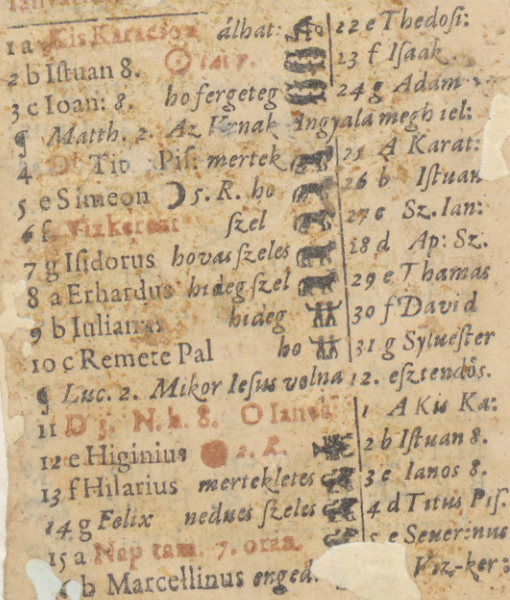 1 a Kis Karacson álhat: 22 e Thedosi:
2 b Iſtuan 8. 23 f Iſaak
3 c Ioan: 8. ho fergeteg 24 g Adam
¶ Matth. 2. Az Vrnak Angyala megh iel:
4 Tit Piſ: mertek 25 A Karat:
5 e Simeon ☽ 5. R. ho 26 b Iſtuan
6 f Vizkereſt ſzel 27 c Sz. Ian:
7 g Iſidorus hovas ſzeles 28 d Ap: Sz.
8 a Erhardus hideg ſzel 29 e Thamas
9 b Iulianus hideg 30 f David
10 c Remete Pal ho 31 g Sylueſter
¶ Luc. 2. Mikor Ieſus volna 12. eſztendős.
11 D 3. N. h. 8. 1 A Kis Ka:
12 e Higinius 2. R. 2 b Iſtuan 8.
13 f Hilarius mertekletes 3 c Ianos 8.
14. g Felix nedues ſzeles 4 d Titus Piſ.
15 a Nap tam. 7. oran. 5 e Seuerinus
b Marcellinus enged. Viz-ker: